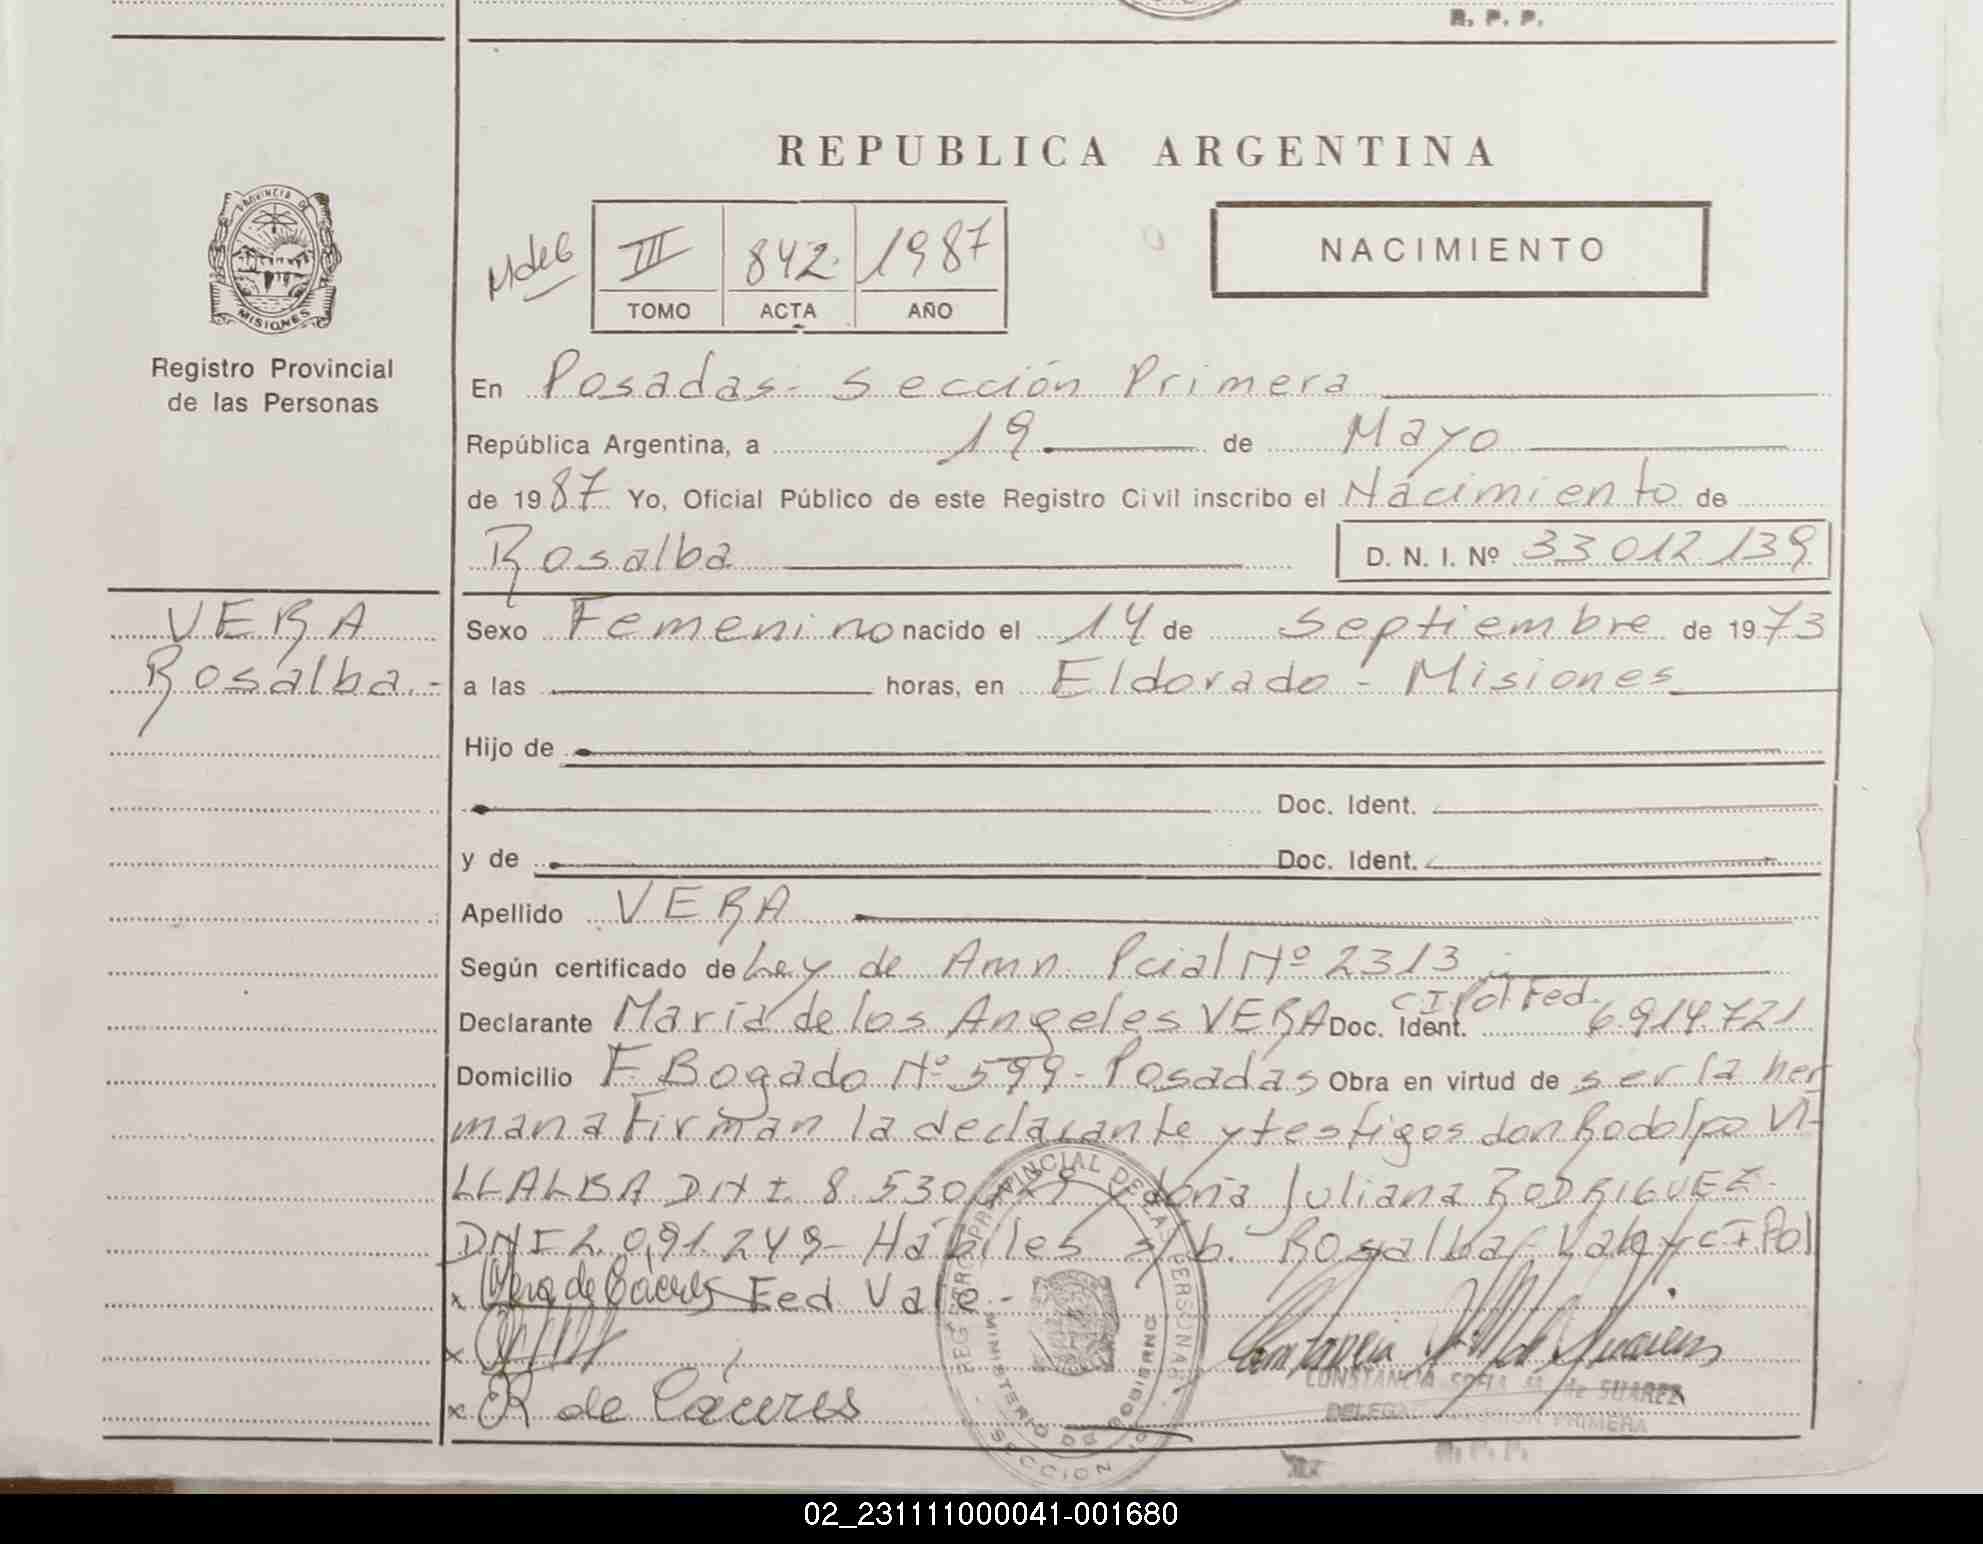 R. P. P.
REPUBLICA ARGENTINA
PROVINCIA DE
MISIONES
Registro Provincial
de las Personas
III 842 1987
TOMO ACTA AÑO
NACIMIENTO
En Posadas - Sección Primera
República Argentina, a 19 de Mayo
de 1987 Yo, Oficial Público de este Registro Civil inscribo el Nacimiento de
Rosalba D. N. I. Nº 33 012 139
VERA
Rosalba.-
Sexo Femenino nacido el 14 de Septiembre de 1973
a las horas, en Eldorado - Misiones
Hijo de
Doc. Ident.
y de Doc. Ident.
Apellido VERA
Según certificado de Ley de Amn. Pcial Nº 2313
Declarante María de los Angeles VERA Doc. Ident. CI Pol Fed. 6.914.721
Domicilio F. Bogado Nº 599 - Posadas Obra en virtud de ser la her
mana Firman la declarante y testigos don Rodolfo VI-
LLALBA DNI 8.530. y doña Juliana RODRIGUEZ -
DNI 2.091.249 - Hábiles s/b. Rosalba Vale y CI Pol
x Vera de Cáceres Fed Vale -
x
x R de Cáceres
REGISTRO PROVINCIAL DE LAS PERSONAS
MINISTERIO DE GOBIERNO
SECCION 1ª
CONSTANCIA SOFIA M. de SUAREZ
SECCION PRIMERA
R. P. P.
02_231111000041-001680